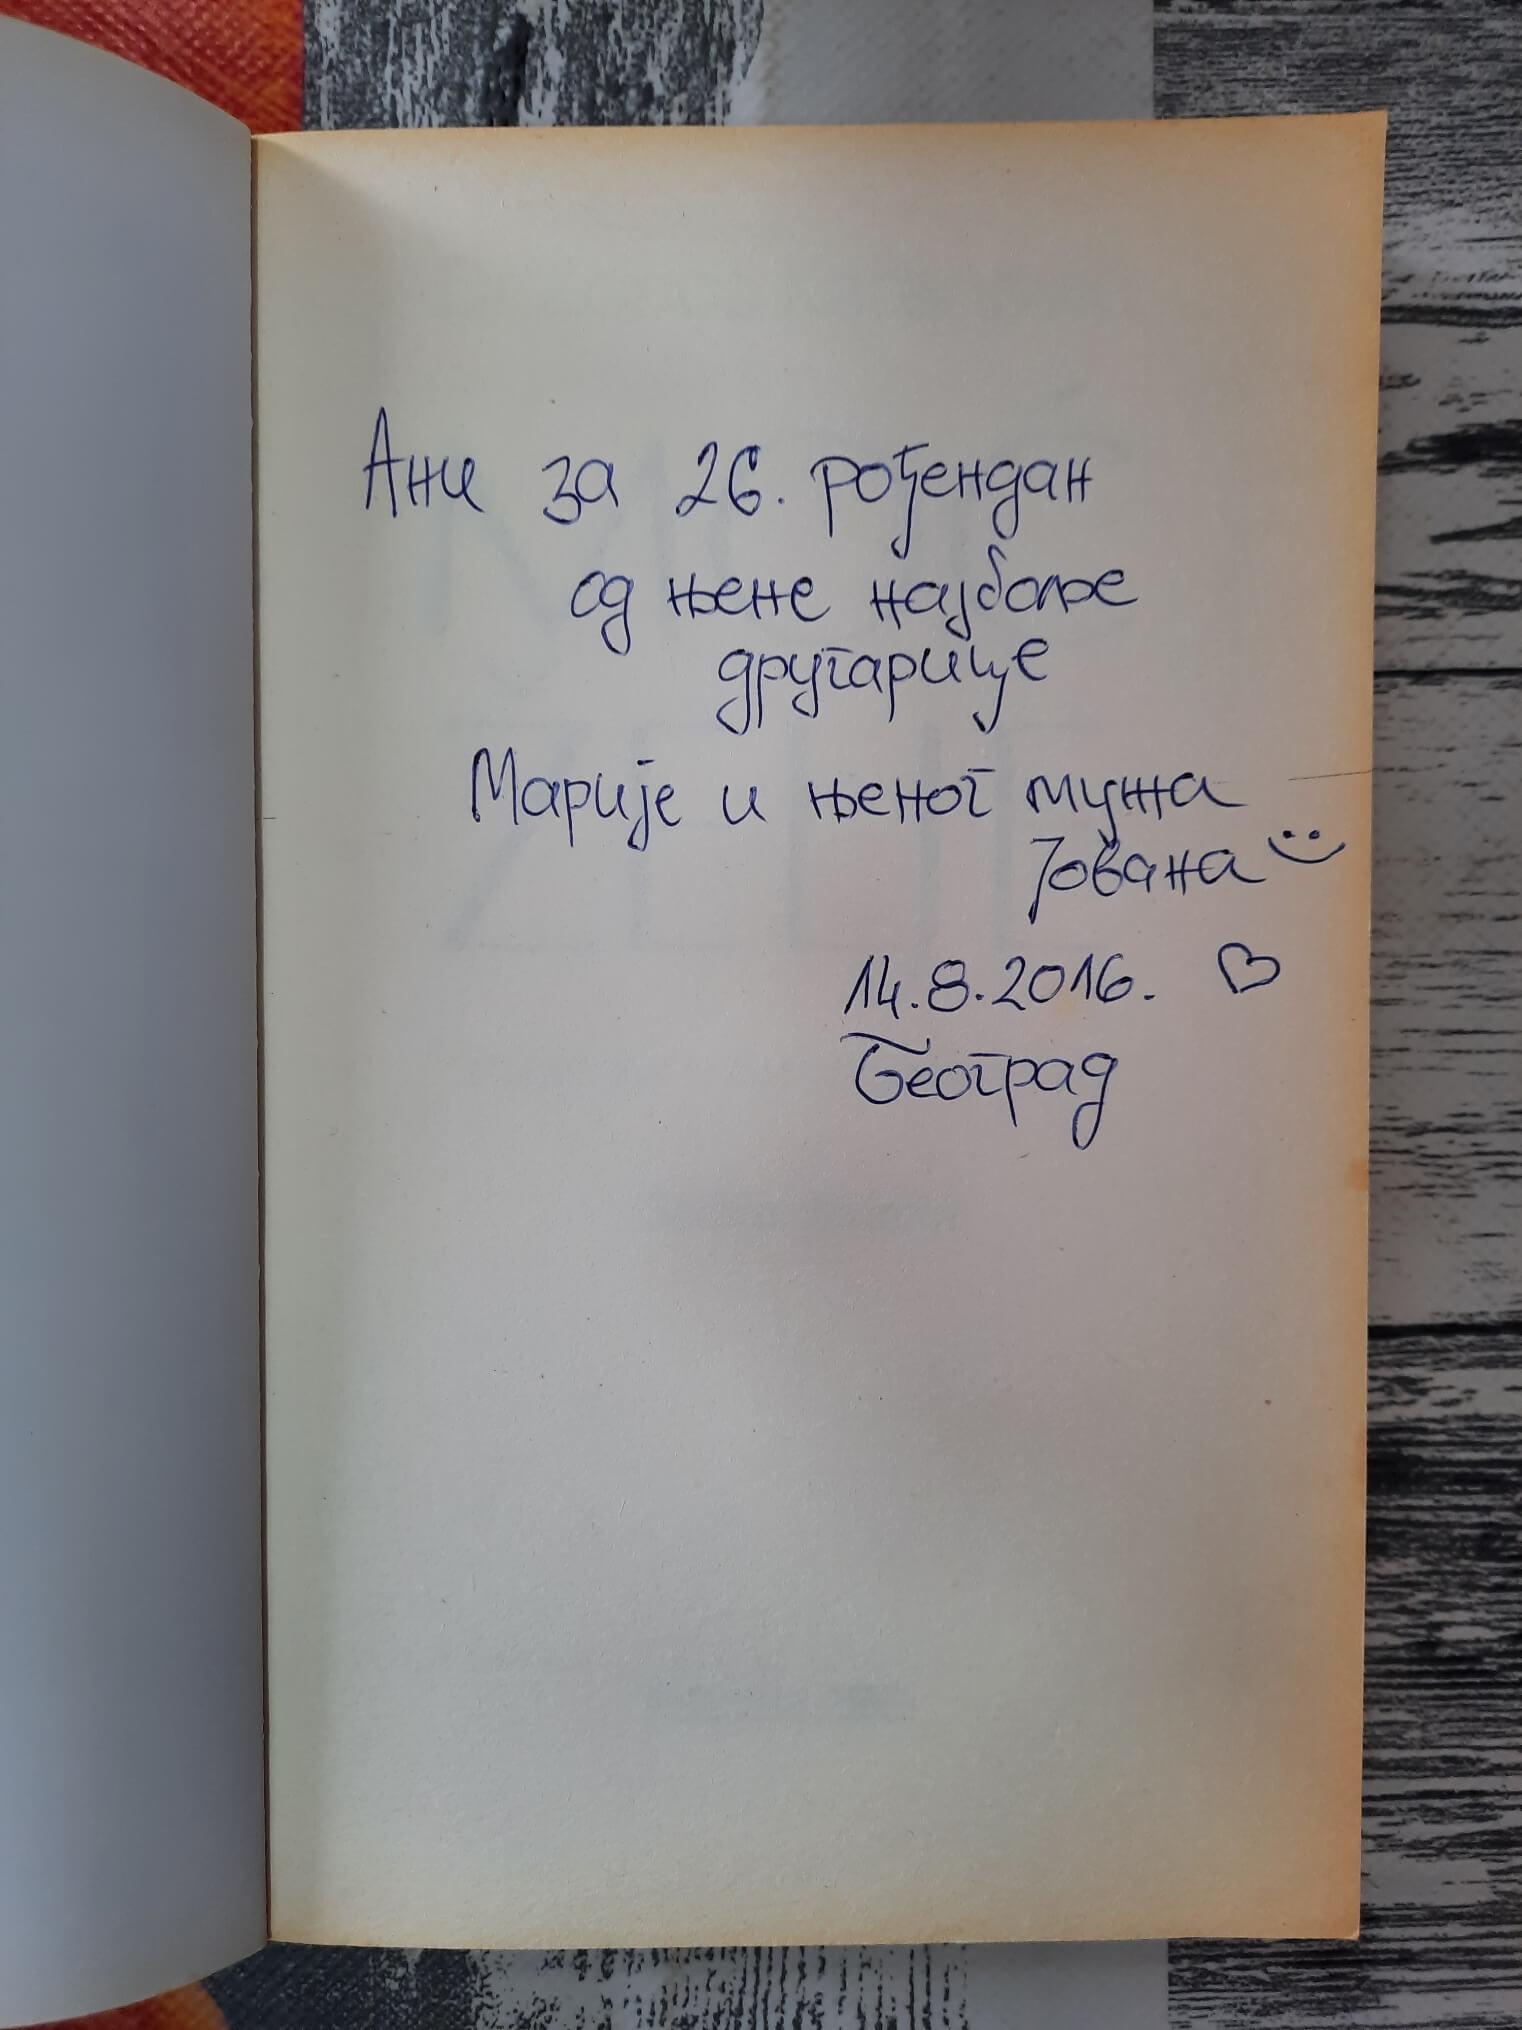 Ани за 26. рођендан
од њене најбоље
другарице
Марије и њеног мужа
Јована
14.8.2016.
Београд